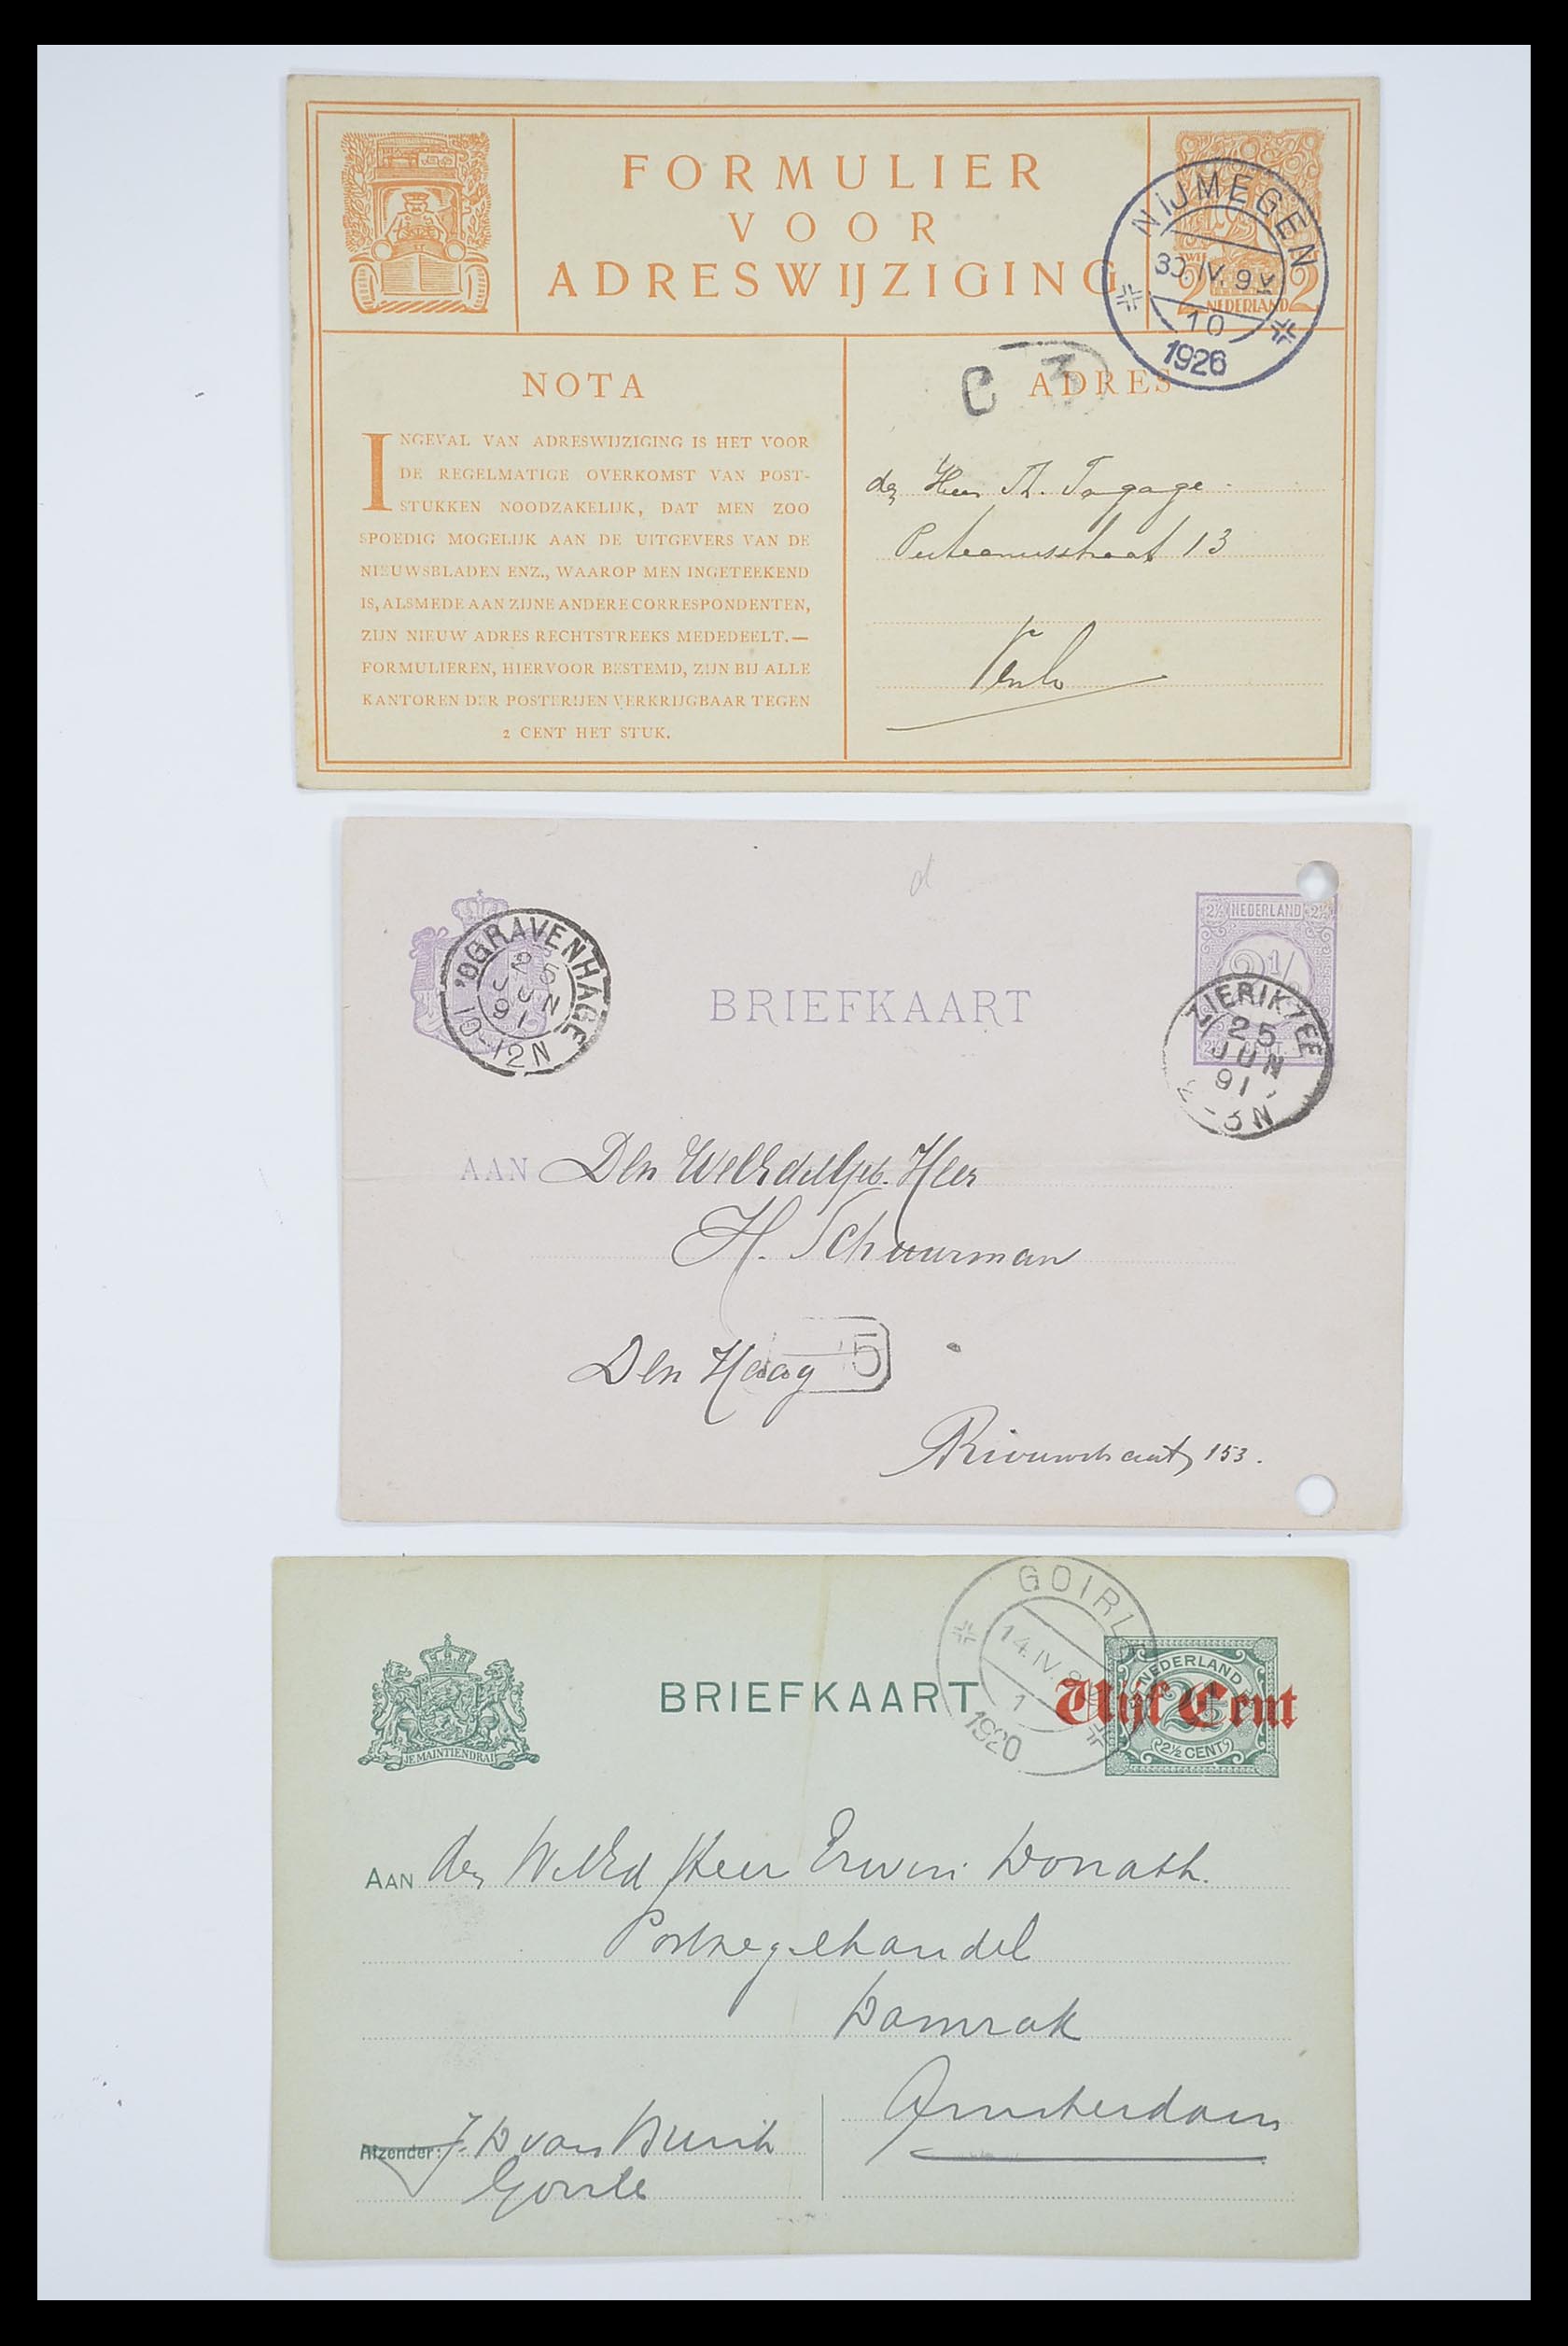 FORMULIER
VOOR
ADRESWIJZIGING
NIJMEGEN
30.IV.9 V
10
1926
2 2
NEDERLAND
NOTA
INGEVAL VAN ADRESWIJZIGING IS HET VOOR
DE REGELMATIGE OVERKOMST VAN POST-
STUKKEN NOODZAKELIJK, DAT MEN ZOO
SPOEDIG MOGELIJK AAN DE UITGEVERS VAN DE
NIEUWSBLADEN ENZ., WAAROP MEN INGETEEKEND
IS, ALSMEDE AAN ZIJNE ANDERE CORRESPONDENTEN,
ZIJN NIEUW ADRES RECHTSTREEKS MEDEDEELT.—
FORMULIEREN, HIERVOOR BESTEMD, ZIJN BIJ ALLE
KANTOREN DER POSTERIJEN VERKRIJGBAAR TEGEN
2 CENT HET STUK.
C 3
ADRES
den Heer Th.
Puteanusstraat 13
Venlo
d
'SGRAVENHAGE
25
JUN
91
10-12N
BRIEFKAART
2½ NEDERLAND 2½
2 1/
ZIERIKZEE
25
JUN
91
2-3N
AAN Den WelEdelGeb. Heer
H. Schuurman
Den Haag
5
Riouwstraat, 153.
GOIRLE
14.IV.
1
1920
JE MAINTIENDRAI
BRIEFKAART
NEDERLAND
2½
2½ CENT
Vijf Cent
AAN den WelEd Heer Erwin Donath.
Postzegelhandel
Damrak
Amsterdam
Afzender: J. D van
Goirle